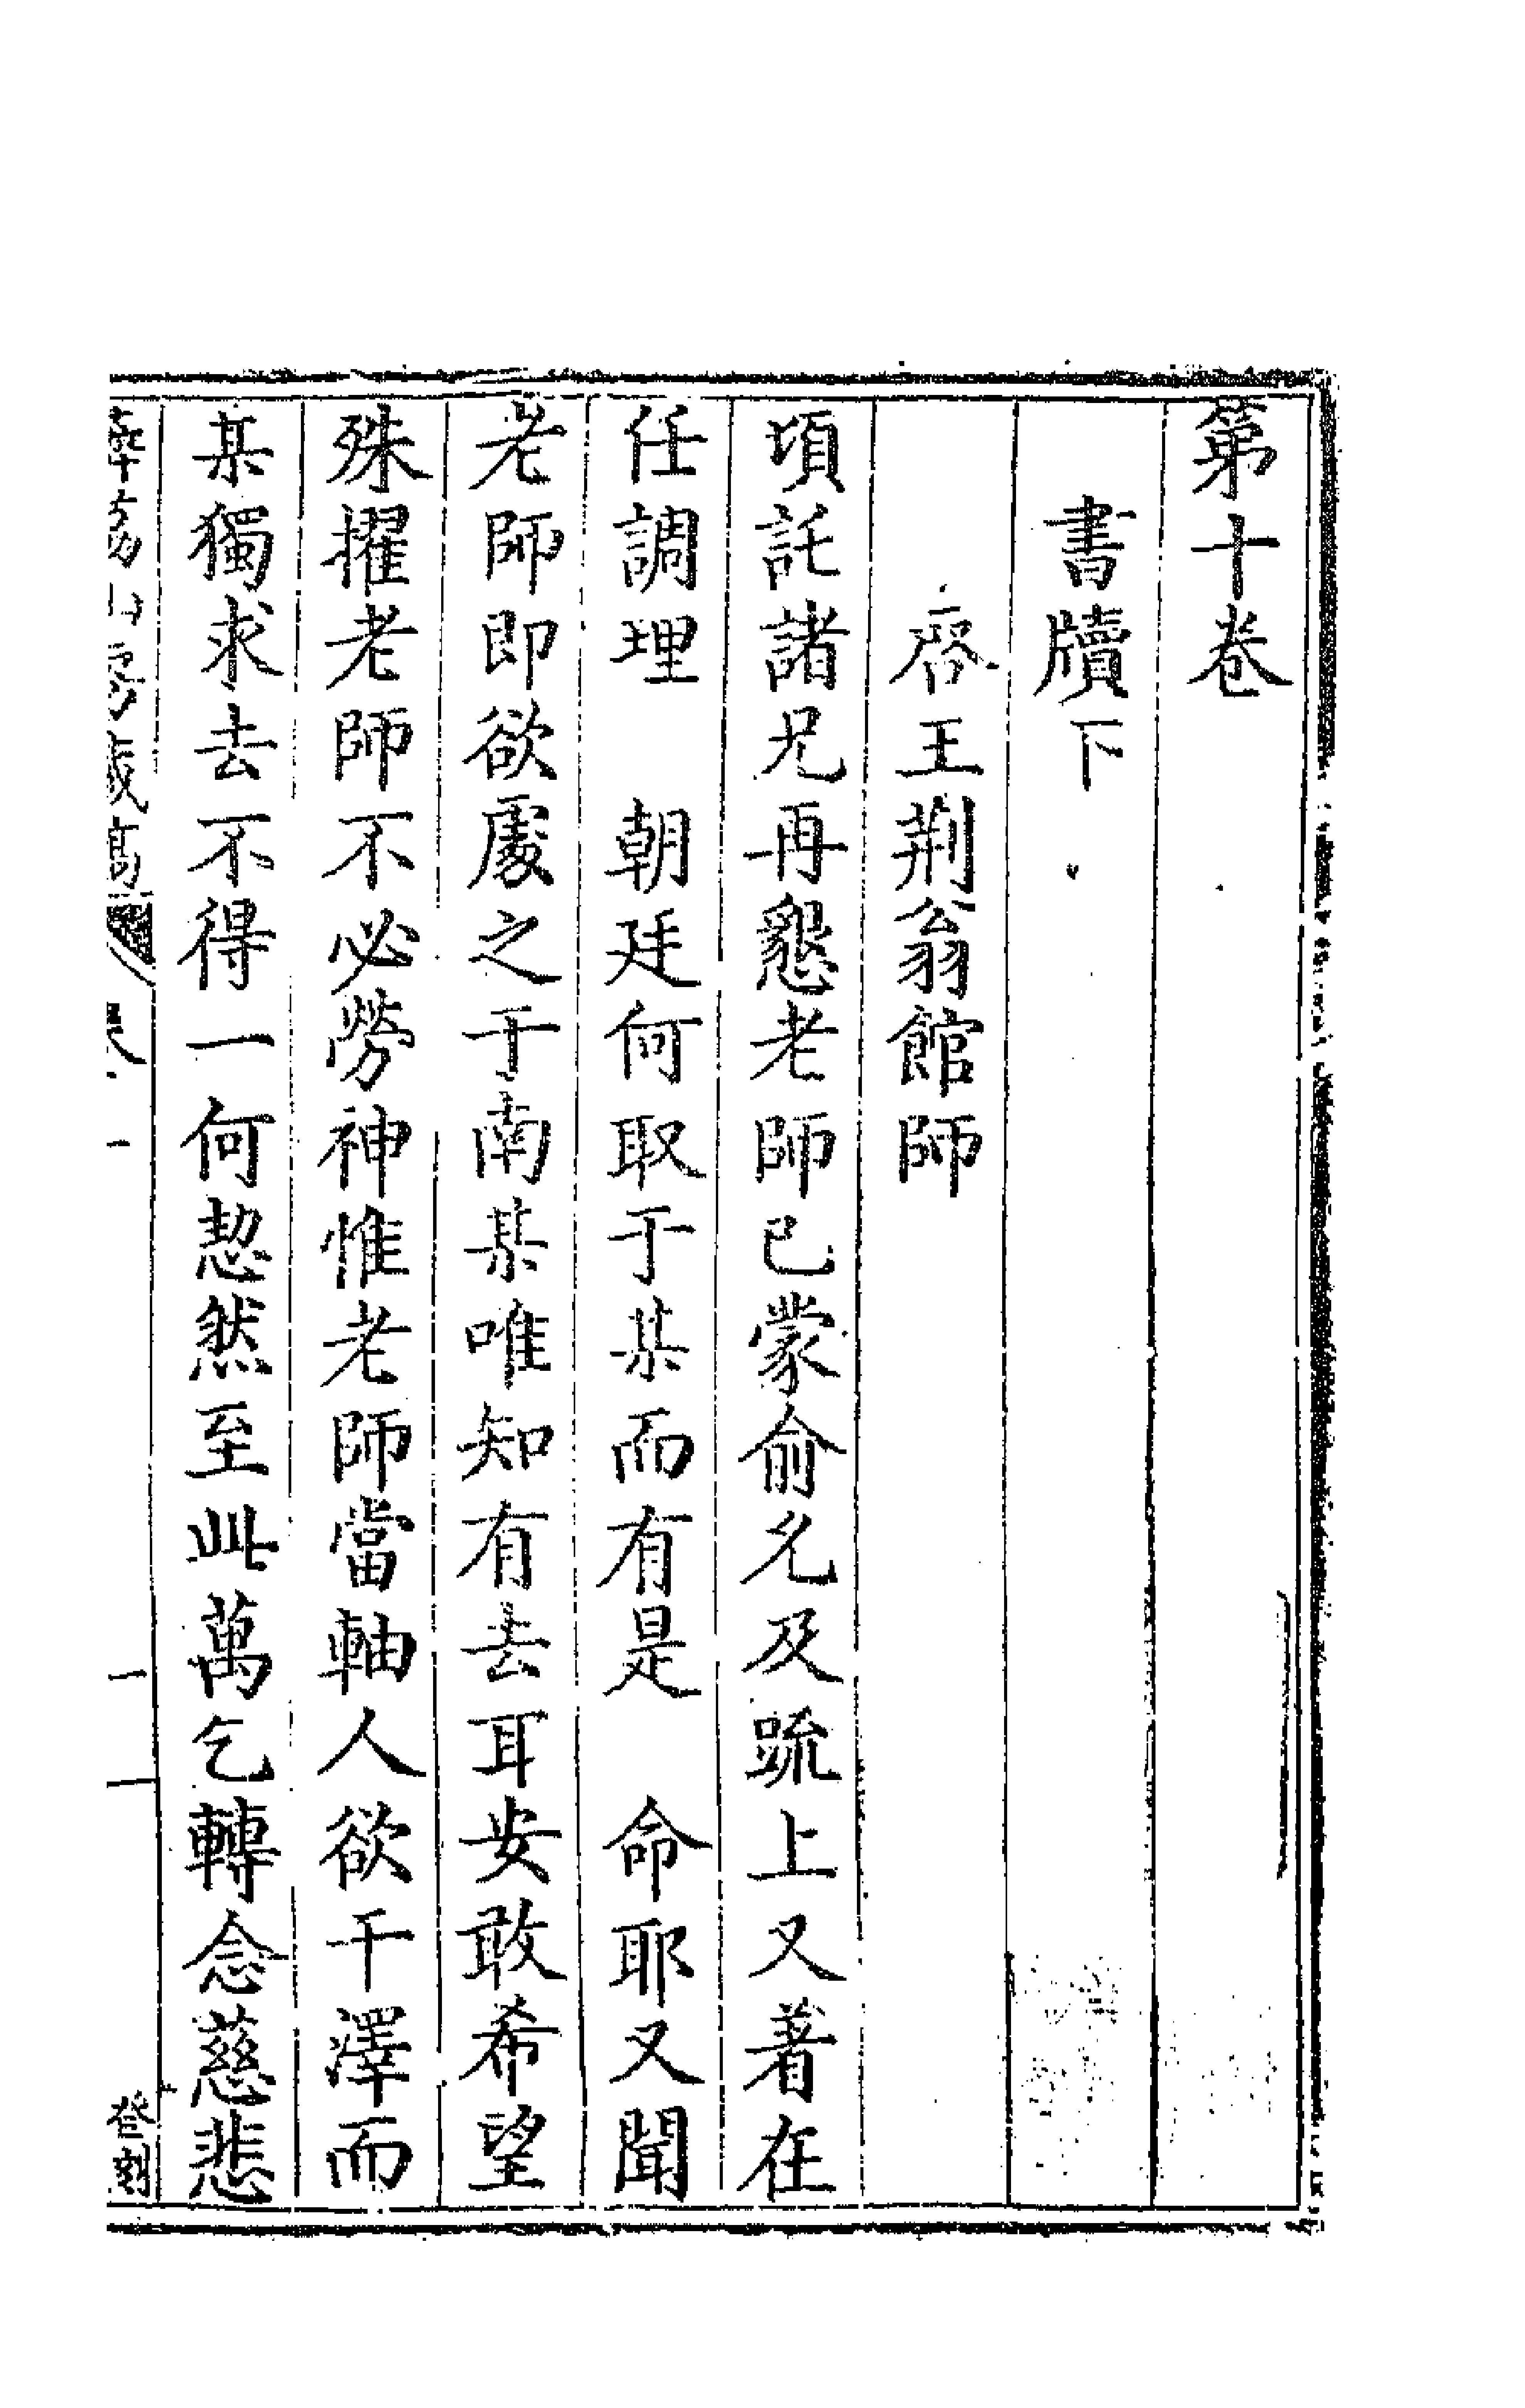 第十卷
書牘下
啓王荆翁館師
頃託諸兄再懇老師已蒙俞允及䟽上又著在
任調理　朝廷何取于某而有是　命耶又聞
老師即欲處之于南某唯知有去耳安敢希望
殊擢老師不必勞神惟老師當軸人欲干澤而
某獨求去不得一何恝然至此萬乞轉念慈悲